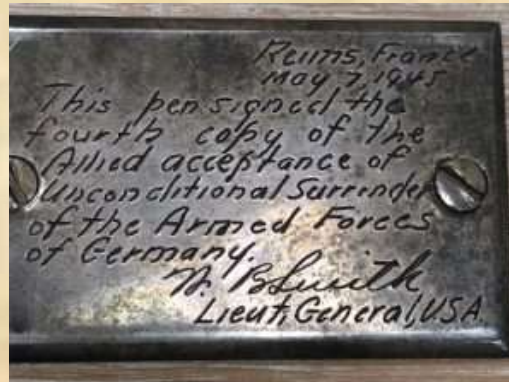 Reims, France
May 7, 1945
This pen signed the
fourth copy of the
Allied acceptance of
Unconditional Surrender
of the Armed Forces
of Germany.
W. B Smith
Lieut, General, U.S.A.